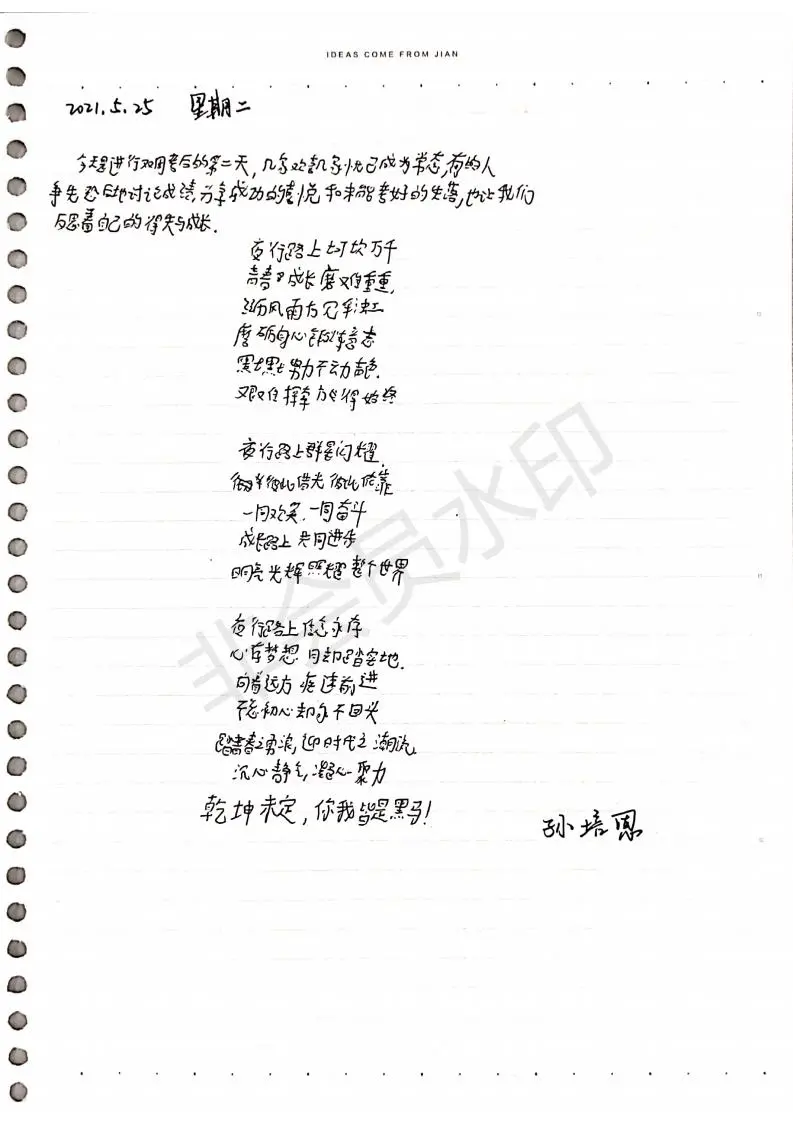 IDEAS COME FROM JIAN
2021.5.25 星期二
今天是进行双周考后的第二天,几家欢喜几家忧已成为常态,有的人
争先恐后地讨论成绩,分享成功的喜悦和未能考好的失落,也让我们
反思着自己的得失与成长.
夜行路上坎坎万千
青春成长磨难重重,
历风雨方见彩虹
磨砺身心锻炼意志
默默努力不动声色.
艰难探索方得始终
夜行路上群星闪耀,
彼此借光 彼此依靠
一同欢笑,一同奋斗
成长路上 共同进步
明亮光辉照耀整个世界
夜行路上信念永存
心存梦想 脚踏实地.
向着远方 疾速前进
不忘初心却永不回头
踏青春之勇浪,迎时代之潮流,
沉心静气,凝心聚力
乾坤未定,你我皆是黑马!
孙培恩
非会员水印